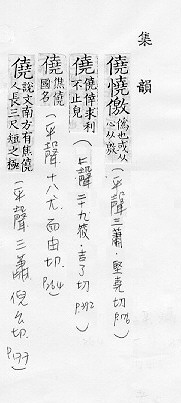 集韻
僥憢儌僞也或从心从敫(平聲三蕭.堅堯切P176)
僥僥倖求利不止皃(上聲二十九篠.吉了切P.392)
僥焦僥國名(平聲十八尤.而由切.P264)
僥說文南方有焦僥人長三尺短之極(平聲三蕭倪幺切.P177)